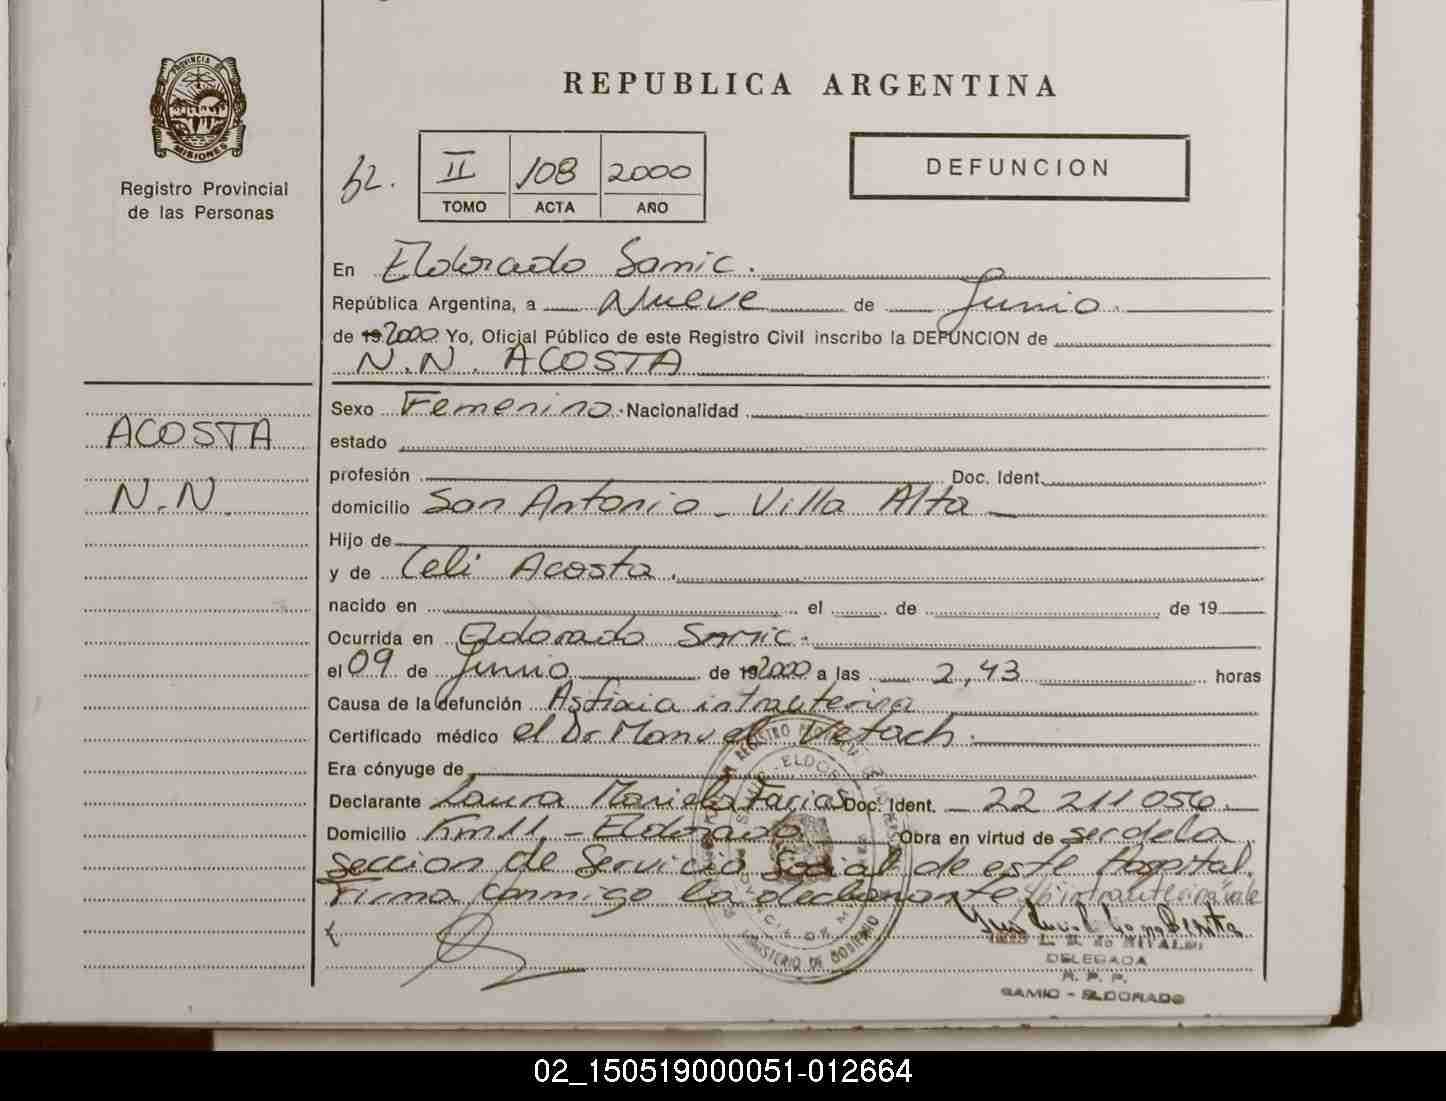 PROVINCIA DE
MISIONES
Registro Provincial
de las Personas
REPUBLICA ARGENTINA
II 108 2000
TOMO ACTA AÑO
DEFUNCION
En Eldorado Samic.
República Argentina, a Nueve de Junio.
de 19 2000 Yo, Oficial Público de este Registro Civil inscribo la DEFUNCION de
N.N. ACOSTA
ACOSTA
N.N.
Sexo Femenino. Nacionalidad
estado
profesión Doc. Ident.
domicilio San Antonio - Villa Alta
Hijo de
y de Celi Acosta.
nacido en el de de 19
Ocurrida en Eldorado Samic.
el 09 de Junio de 19 2000 a las 2,43 horas
Causa de la defunción Asfixia intrauterina
Certificado médico el Dr Manuel
Era cónyuge de
Declarante Laura Mariela Farias Doc. Ident. 22 211 056
Domicilio Km 11. - Eldorado Obra en virtud de ser de la
Seccion de Servicio Social de este Hospital.
Firma conmigo la declarante
MINISTERIO DE GOBIERNO
DELEGADA
R. P. P.
SAMIC - ELDORADO
02_150519000051-012664